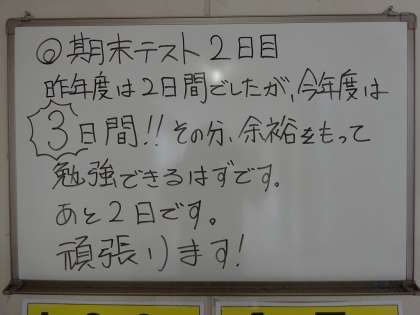 ◎期末テスト2日目
昨年度は2日間でしたが、今年度は
3日間!!その分、余裕をもって
勉強できるはずです。
あと2日です。
頑張ります!